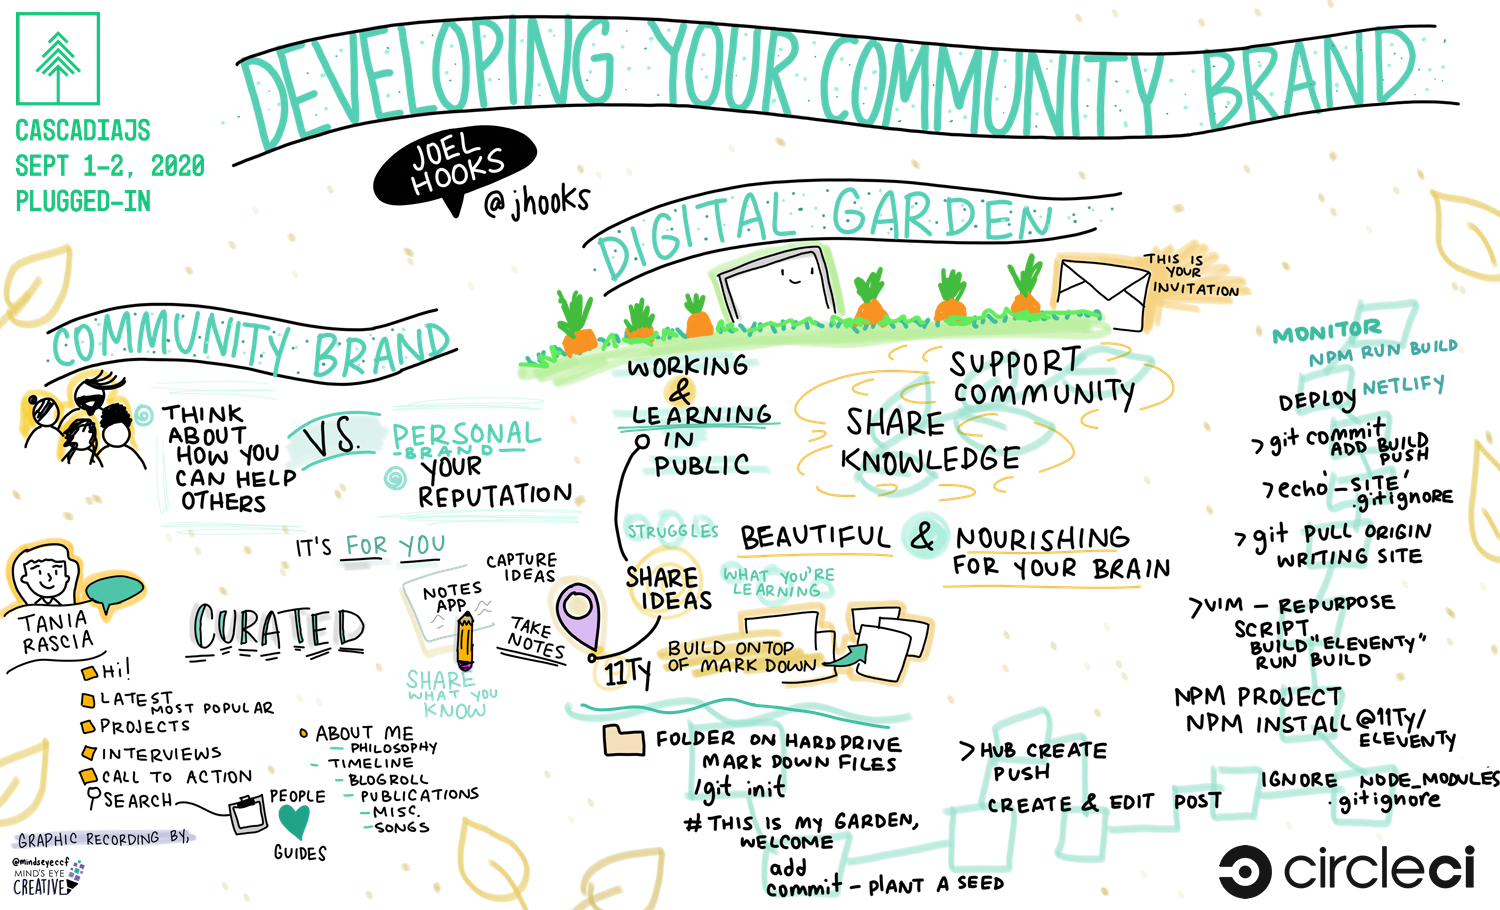 CASCADIAJS
SEPT 1-2, 2020
PLUGGED-IN
DEVELOPING YOUR COMMUNITY BRAND
JOEL
HOOKS
@jhooks
COMMUNITY BRAND
THINK
ABOUT
HOW YOU
CAN HELP
OTHERS
VS.
PERSONAL
BRAND
YOUR
REPUTATION
IT'S FOR YOU
TANIA
RASCIA
CURATED
Hi!
LATEST
MOST POPULAR
PROJECTS
INTERVIEWS
CALL TO ACTION
SEARCH
PEOPLE
GUIDES
ABOUT ME
- PHILOSOPHY
- TIMELINE
- BLOGROLL
- PUBLICATIONS
- MISC.
- SONGS
GRAPHIC RECORDING BY,
@mindseyeccf
MIND'S EYE
CREATIVE
CAPTURE
IDEAS
NOTES
APP
TAKE
NOTES
SHARE
WHAT YOU
KNOW
DIGITAL GARDEN
THIS IS
YOUR
INVITATION
WORKING
&
LEARNING
IN
PUBLIC
SUPPORT
COMMUNITY
SHARE
KNOWLEDGE
STRUGGLES
SHARE
IDEAS
WHAT YOU'RE
LEARNING
BEAUTIFUL & NOURISHING
FOR YOUR BRAIN
11Ty
BUILD ON TOP
OF MARK DOWN
FOLDER ON HARD DRIVE
MARK DOWN FILES
/git init
# THIS IS MY GARDEN,
WELCOME
add
commit - PLANT A SEED
> HUB CREATE
PUSH
CREATE & EDIT POST
IGNORE NODE_MODULES
.gitignore
NPM PROJECT
NPM INSTALL @11Ty/
ELEVENTY
> VIM - REPURPOSE
SCRIPT
BUILD "ELEVENTY"
RUN BUILD
> git PULL ORIGIN
WRITING SITE
> echo '_SITE'
.gitignore
> git commit
ADD BUILD
PUSH
DEPLOY NETLIFY
MONITOR
NPM RUN BUILD
circleci